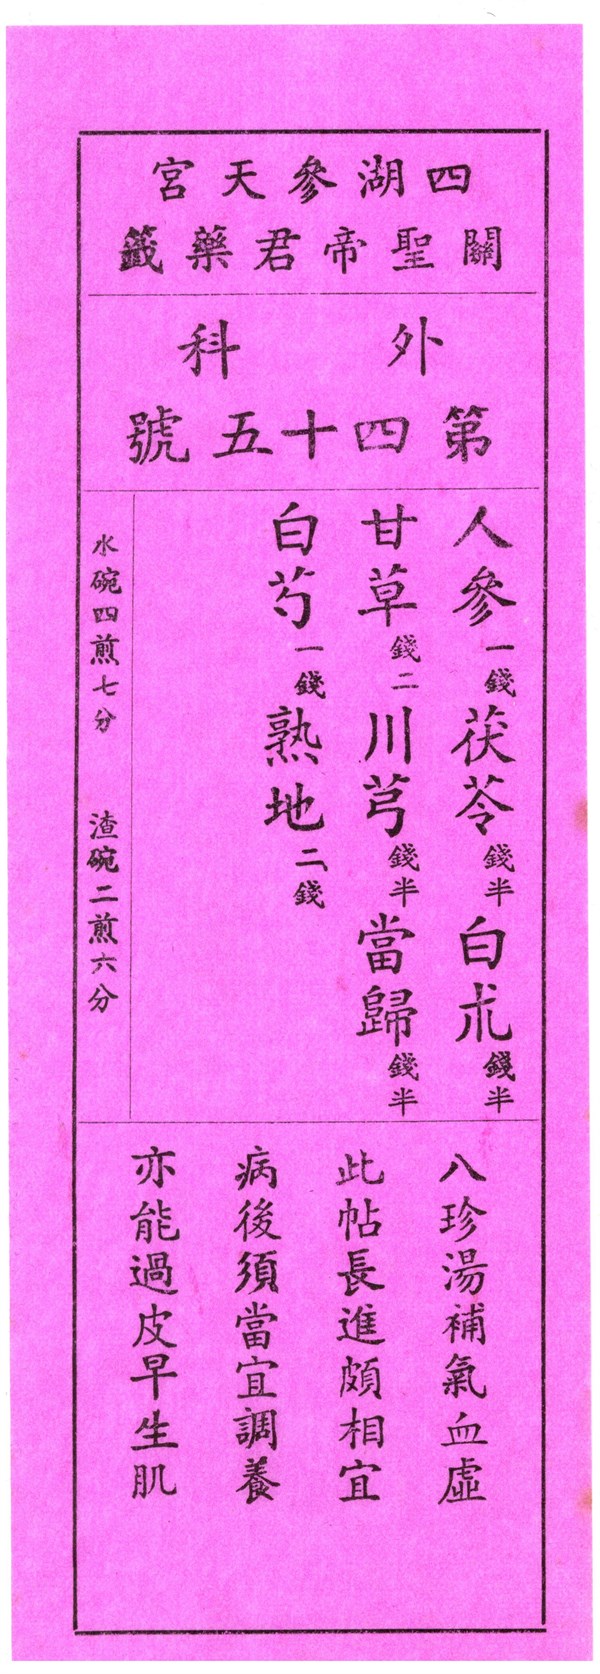 四湖參天宮
關聖帝君藥籤
外科
第四十五號
人參一錢茯苓錢半白朮錢半
甘草錢二川芎錢半當歸錢半
白芍一錢熟地二錢
水碗四煎七分 渣碗二煎六分
八珍湯補氣血虛
此帖長進頗相宜
病後須當宜調養
亦能過皮早生肌